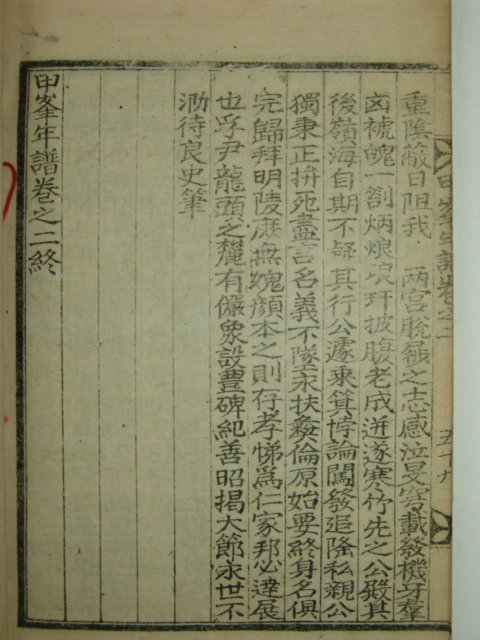 甲峯年譜卷之二 五十九
重陰蔽日阻我 兩宮脫屣之志感泣旻穹載發機牙羣
凶褫魄一劄炳烺琅玕披腹老成迸逐寒竹先之公殿其
後嶺海自期不疑其行公遽乘箕悖論闖發追隆私親公
獨秉正拚死盡言名義不墜永扶彛倫原始要終身名俱
完歸拜明陵庶撫媿顔本之則存孝悌爲仁家邦必達展
也孚尹龍頭之麓有儼象設豊碑紀善昭揭大節永世不
泐待良史筆
甲峯年譜卷之二終